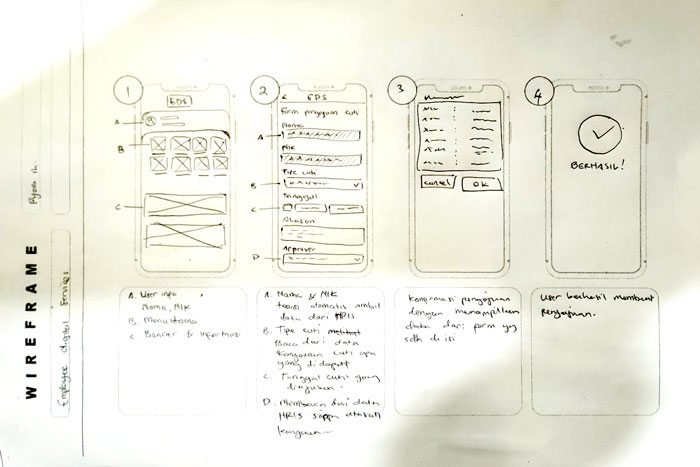 WIREFRAME
Employee digital services
1
EDS
A
B
C
A. User info
Nama, NIK
B. Menu utama
C. Banner & informasi
2
< EDS
Form pengajuan cuti
Nama
A
NIK
Tipe cuti
B
Tanggal
C
Alasan
Approver
D
A. Nama & NIK
terisi otomatis ambil
data dari HRIS
B. Tipe cuti
Baca dari data
karyawan cuti apa
yang di dapat
C. Tanggal cuti yang
diajukan.
D. Membaca dari data
HRIS siapa atasan
karyawan
3
Cancel
OK
Konfirmasi pengajuan
dengan menampilkan
data dari form yg
sdh di isi
4
BERHASIL!
User berhasil membuat
pengajuan.